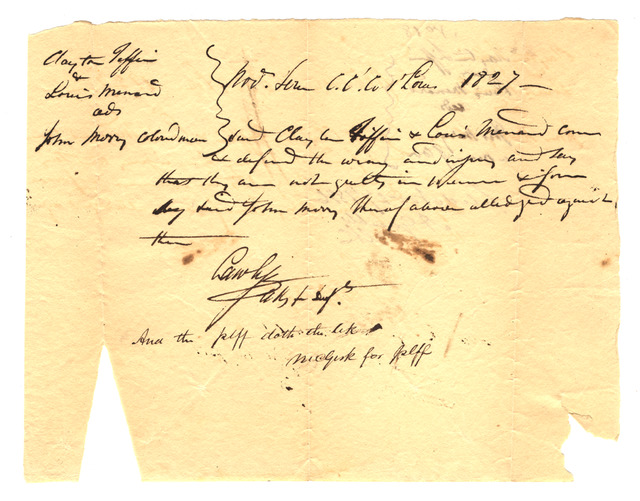 Clayton Tiffin
&
Louis Menard
ads
John Merry Colourdman
Nov. Term C.C. Co St Louis 1827 —
And Clayton Tiffin & Louis Menard come
& defend the wrong and injury and say
that they are not guilty in manner & form
as said John Merry thereof above alledged against
them
Atty for Deft.
And the plff doth the like
McGirk for plff